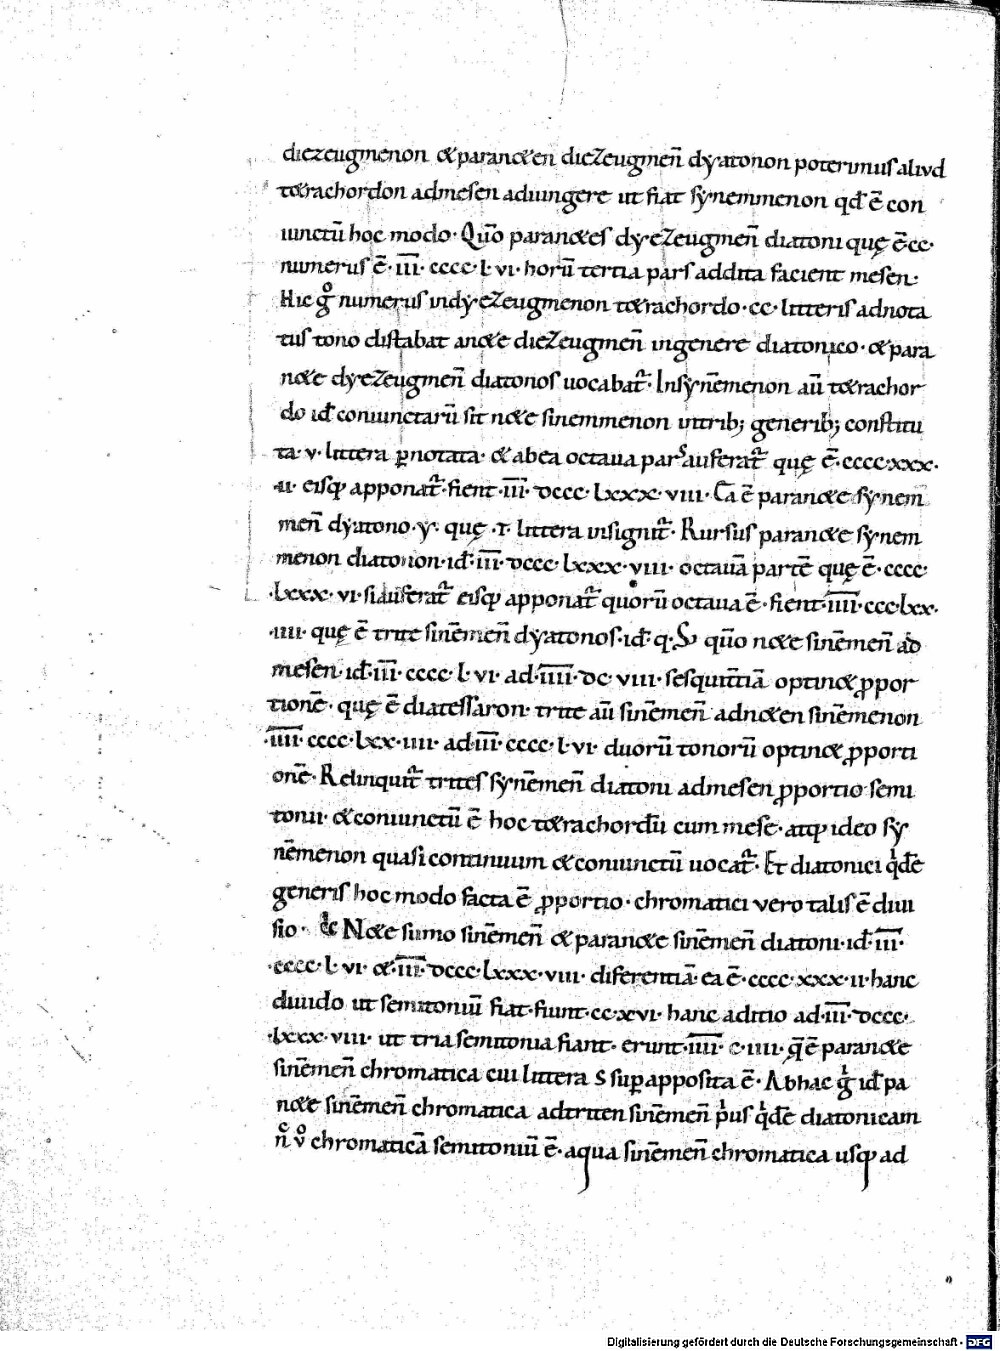 diezeugmenon & paran&en dieZeugmen̄ dyatonon poterimus aliud
t&rachordon admesen adiungere ut fiat synemmenon qđ ē con
iunctū hoc modo · Quō paran&es dyeZeugmen̄ diatoni quę ē·cc·
numerus ē·III̅· cccc·l·vi· horū tertia pars addita facient mesen·
Hic gͦ numerus indyeZeugmenon t&rachordo·cc·litteris adnota
tus tono distabat an&e dieZeugmen̄ ingenere diatonico·& para
n&e dyeZeugmen̄ diatonos uocabat᷑· Insyn̄emenon aū t&rachor
do id̄ coniunctarū sit n&e sinemmenon intrib; generib; constitu
ta·v·littera p̲notata·& abea octaua pars auferat᷑ quę ē·cccc·xxx·
ii· eisq; apponat᷑·fient·III̅·dccc·lxxx·viii· C̄a ē paran&e synem̄
men̄ dyatono·y· quę ·r· littera insignit᷑· Rursus paran&e synem
menon diatonon·id̄·III̅·dccc·lxxx·viii· octauā partē quę ē·cccc·
·lxxx·vi· si auferat᷑ eisq; apponat᷑ quorū octaua ē·fient·IIII̅·ccc·lxx·
·iiii· quę ē trite sin̄emen̄ dyatonos·id̄·q·S; quō n&e sin̄emen̄ ad
mesen·id̄·III̅·cccc·l·vi·ad·IIII̅·dc·viii· sesquit̄tiā optin& p̱por
tionē· quę ē diatessaron· trite aū sin̄emen̄ adn&en sin̄emenon
·IIII̅·cccc·lxx·iiii·ad·III̅·cccc·l·vi· duorū tonorū optin& p̱porti
onē· Relinquit᷑ trites syn̄emen̄ diatoni admesen p̱portio semi
tonii·& coniunctū ē hoc t&rachordū cum mese·atq; ideo sy
n̄emenon quasi continuum & coniunctū uocat᷑· Et diatonici qͥdē
generis hoc modo facta ē p̱portio·chromatici vero talis ē diui
sio· N&e sumo sin̄emen̄ & paran&e sin̄emen̄ diatoni·id̄·III̅·
·cccc·l·vi·&·III̅·dccc·lxxx·viii· diferentiā·ea ē·cccc·xxx·ii·hanc
diuido ut semitoniū fiat·fiunt·cc·xvi· hanc aditio ad·III̅·dccc·
·lxxx·viii· ut tria semitonia fiant·erunt·IIII̅·c·iiii·q̄ ē paran&e
sin̄emen̄ chromatica cui littera S supapposita ē· Abhac gͥ id̄ pa
n&e sin̄emen̄ chromatica adtriten sin̄emen̄ pͥus qͥdē diatonicam
nͨ vͦ chromaticā semitoniū ē·aqua sin̄emen̄ chromatica usq; ad
Digitalisierung gefördert durch die Deutsche Forschungsgemeinschaft - DFG